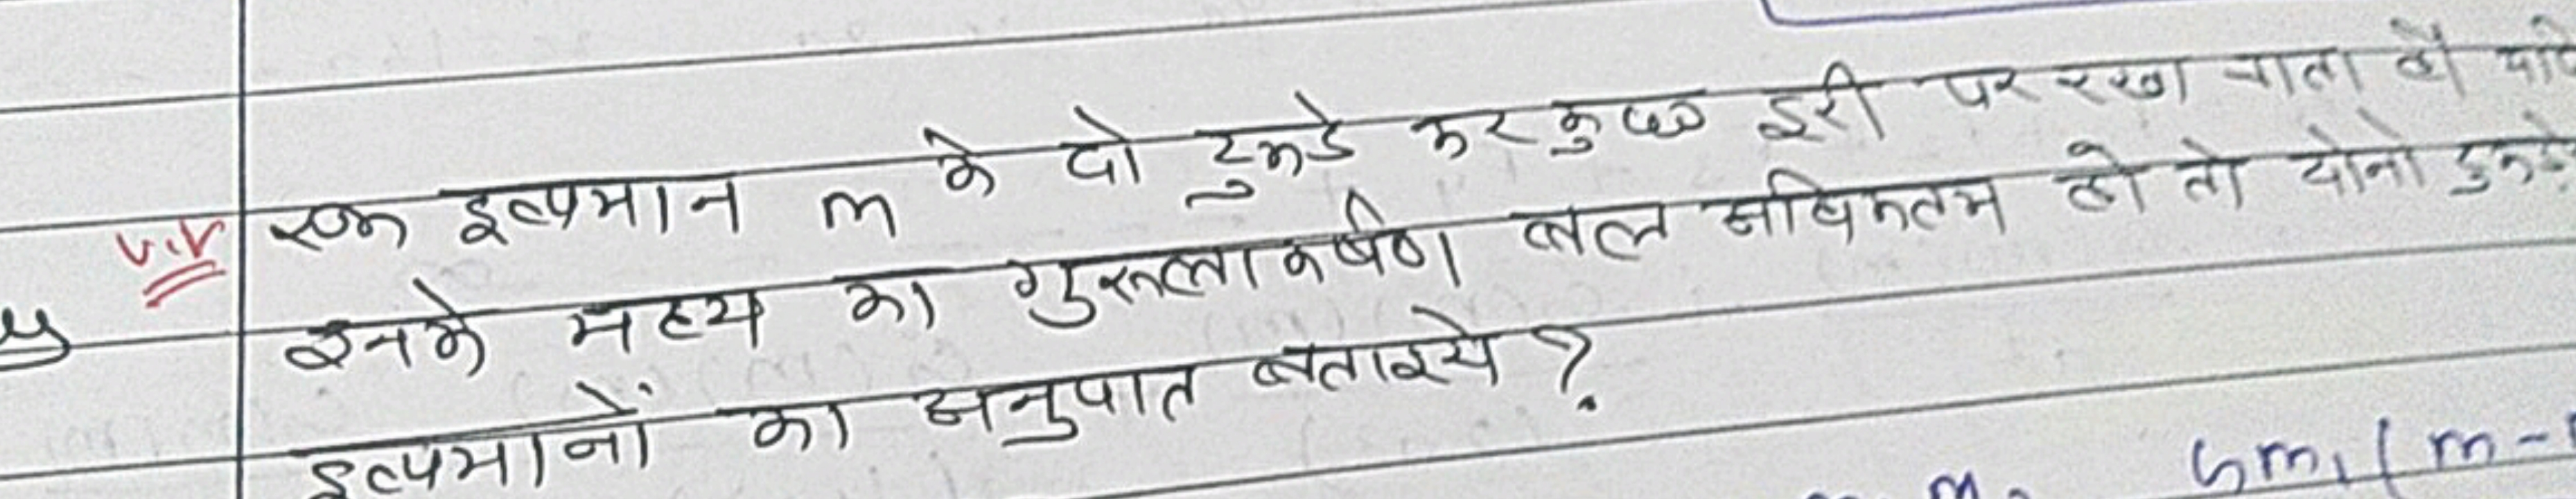 V.V एक द्रव्यमान m के दो टुकडे कर कुछ दूरी पर रखा जाता है यदि
इनके मध्य का गुरुत्वाकर्षण बल अधिकतम हो तो दोनो टुकड़े
द्रव्यमानों का अनुपात बताइये ?
Gm₁(m-